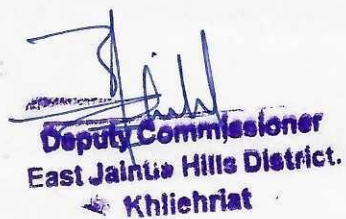 Deputy Commissioner
East Jaintia Hills District.
Khliehriat